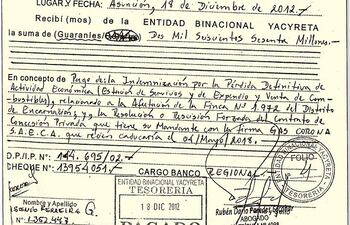 LUGAR Y FECHA: Asunción, 18 de Diciembre de 2012.-
Recibí (mos) de la ENTIDAD BINACIONAL YACYRETA
la suma de (Guaraníes) Dos Mil Sesenta Millones.-
En concepto de Pago de la Indemnización por la Pérdida Definitiva de
Actividad Económica (Estación de Servicios y de Expendio y Venta de Com-
bustibles), relacionado a la Afectación de la Finca Nº 1.972 del Distrito
de Encarnación, y la Resolución o Rescisión Forzada del Contrato de
Concesión Privada que tiene su Mandante con la firma GAS CORONA
S.A.E.C.A. que recién caducaría el 01/Mayo/2018.-
D.P./I.P. Nº: 144.695/02.-
CHEQUE Nº 13954051.- CARGO BANCO REGIONAL
ENTIDAD BINACIONAL YACYRETA
TESORERIA
18 DIC 2012
PAGADO
FOLIO
TESORERIA
Nombre y Apellido
FERREIRA G.
1.357.447
Rubén Darío
ABOGADO